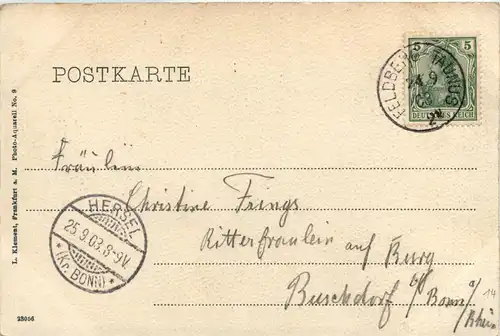 POSTKARTE
5
DEUTSCHES REICH
FELDBERG (TAUNUS)
24 9
03
Fräulein
Christine Frings
Ritterfräulein auf Burg
Buschdorf b/ Bonn a/
Rhein
14
HERSEL
25.9.03.8-9V.
*(Kr. BONN)*
L. Klement, Frankfurt a. M. Photo-Aquarell No. 9